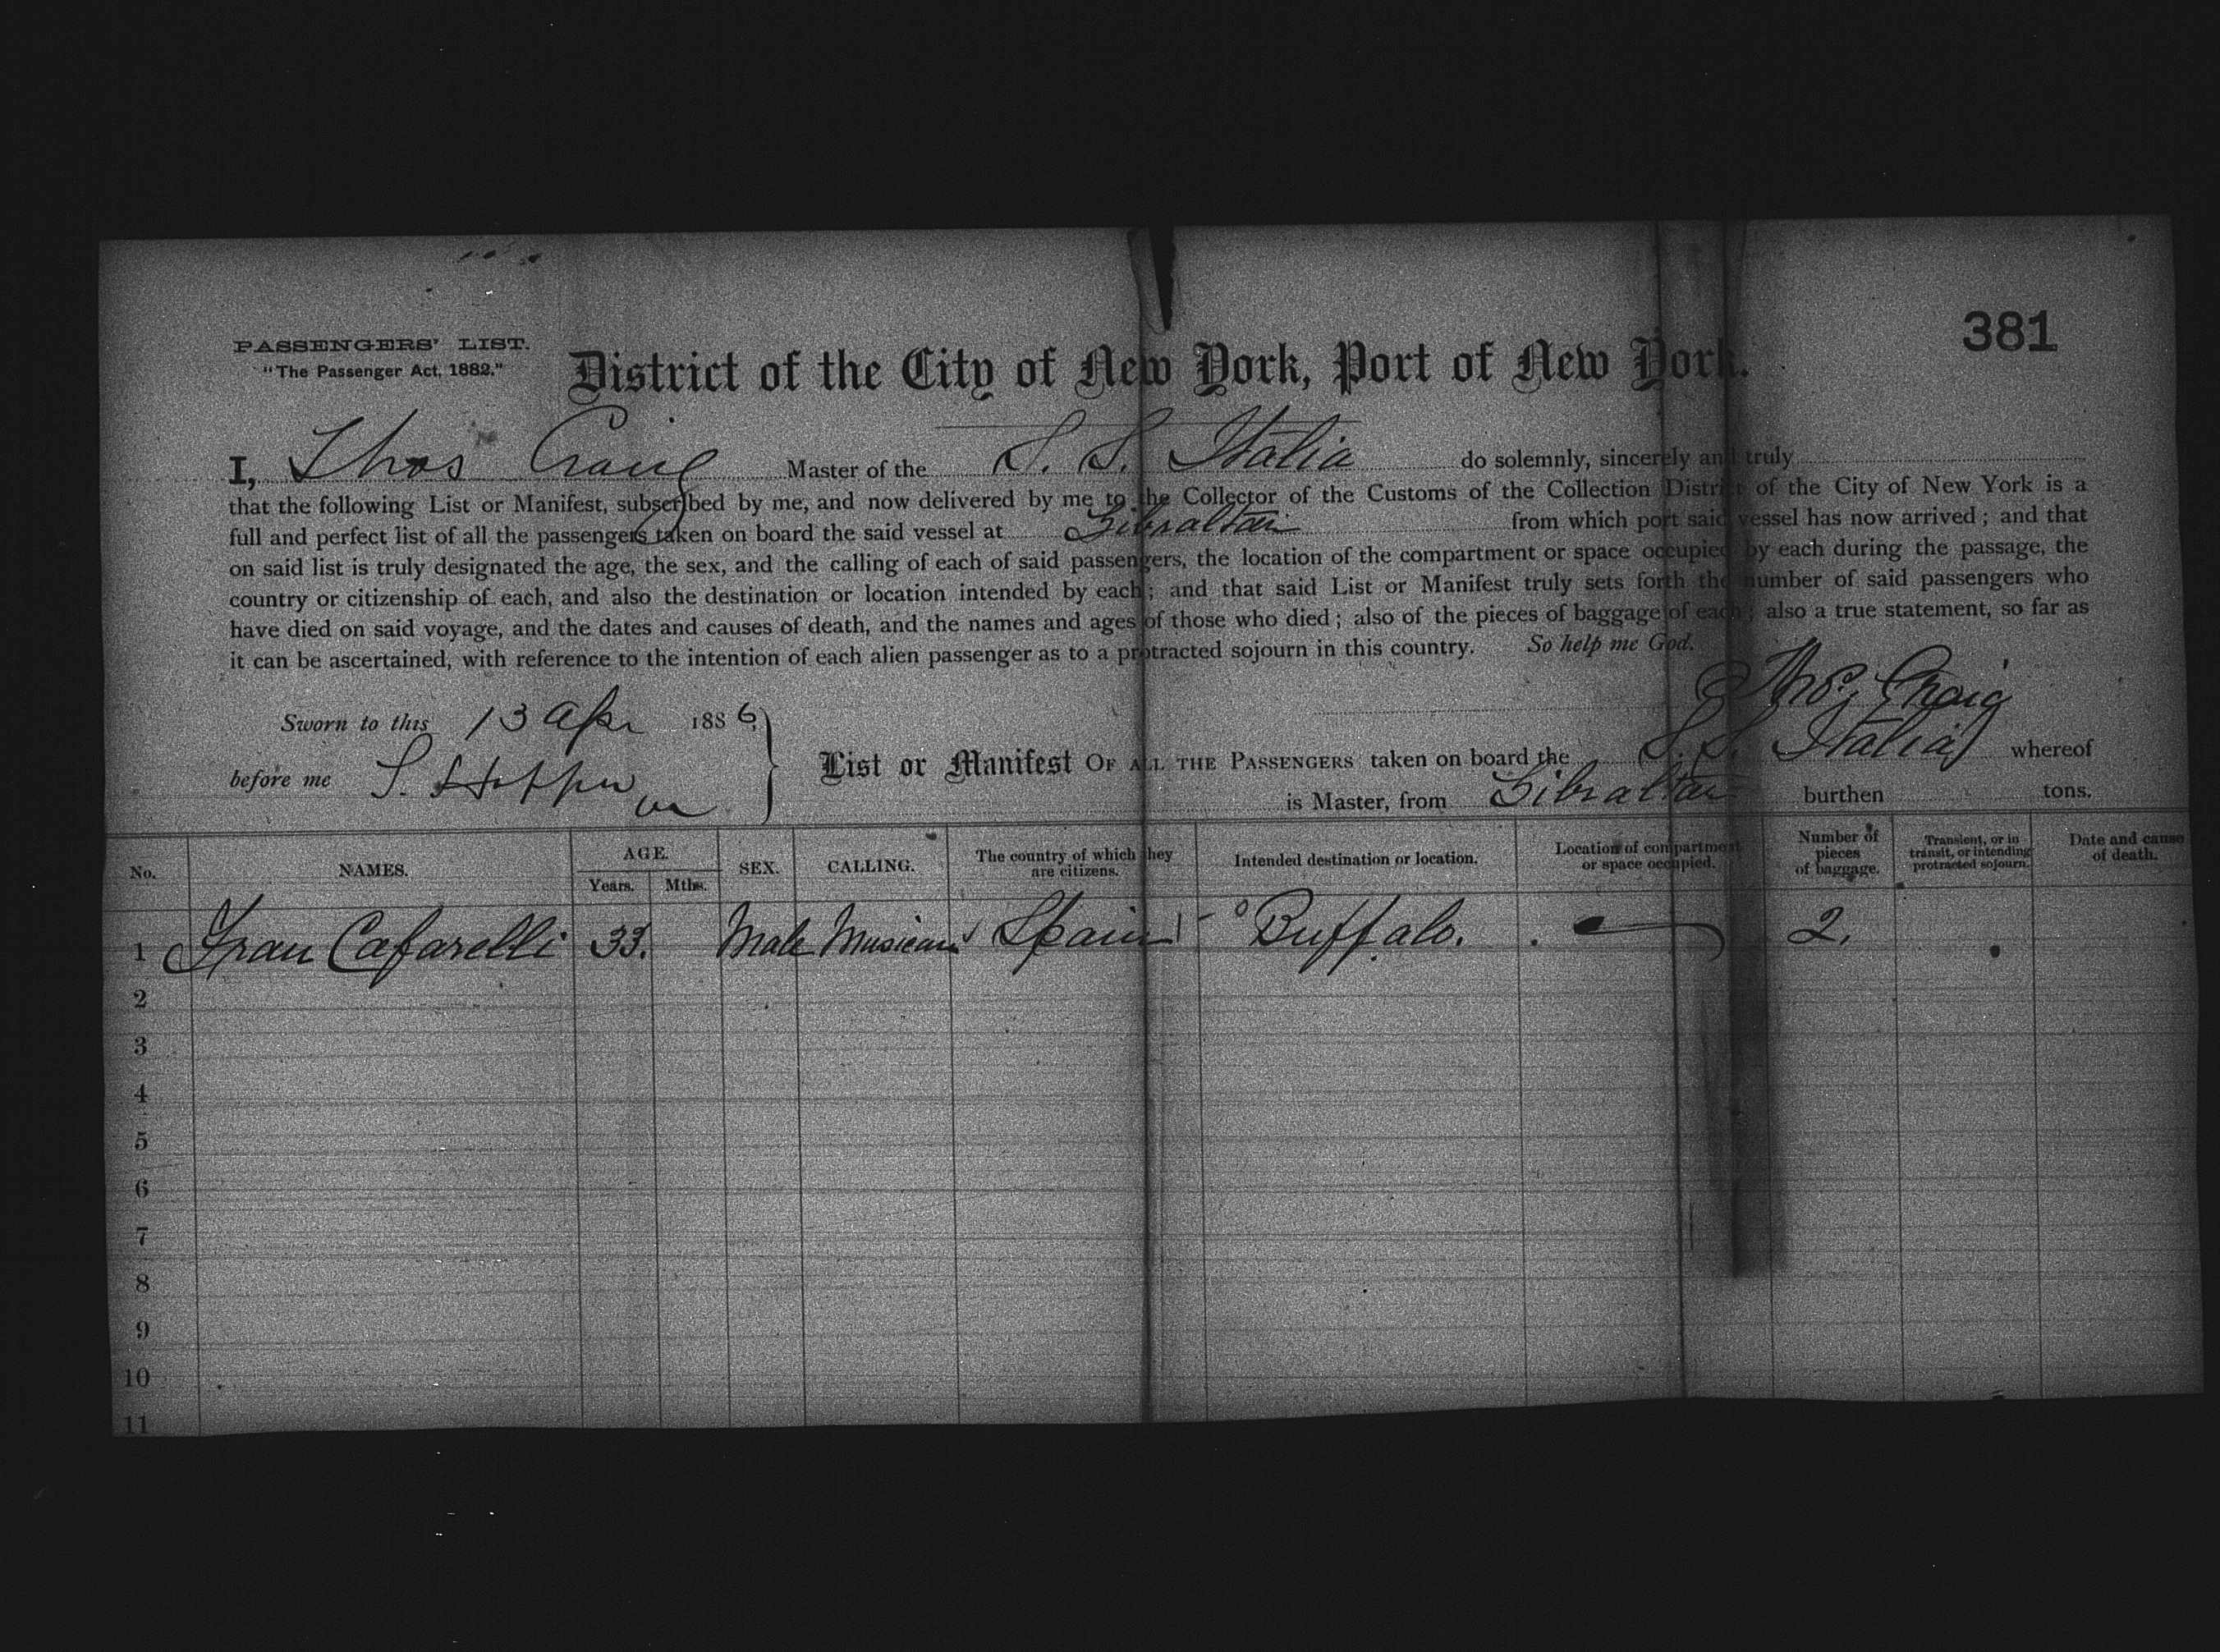 381
PASSENGERS' LIST.
"The Passenger Act, 1882."
District of the City of New York, Port of New York.
I, Thos Craig Master of the S. S. Italia do solemnly, sincerely and truly
that the following List or Manifest, subscribed by me, and now delivered by me to the Collector of the Customs of the Collection District of the City of New York is a
full and perfect list of all the passengers taken on board the said vessel at Gibraltar from which port said vessel has now arrived; and that
on said list is truly designated the age, the sex, and the calling of each of said passengers, the location of the compartment or space occupied by each during the passage, the
country or citizenship of each, and also the destination or location intended by each; and that said List or Manifest truly sets forth the number of said passengers who
have died on said voyage, and the dates and causes of death, and the names and ages of those who died; also of the pieces of baggage of each; also a true statement, so far as
it can be ascertained, with reference to the intention of each alien passenger as to a protracted sojourn in this country. So help me God.
Thos Craig
Sworn to this 13 Apr 1886
before me S.
List or Manifest OF ALL THE PASSENGERS taken on board the S. S. Italia whereof
is Master, from Gibraltar burthen tons.
No. NAMES. AGE. Years. Mths. SEX. CALLING. The country of which they are citizens. Intended destination or location. Location of compartment or space occupied. Number of pieces of baggage. Transient, or in transit, or intending protracted sojourn. Date and cause of death.
1 Fran Cafarelli 33. Male Musician Spain Buffalo. 2.
2
3
4
5
6
7
8
9
10
11